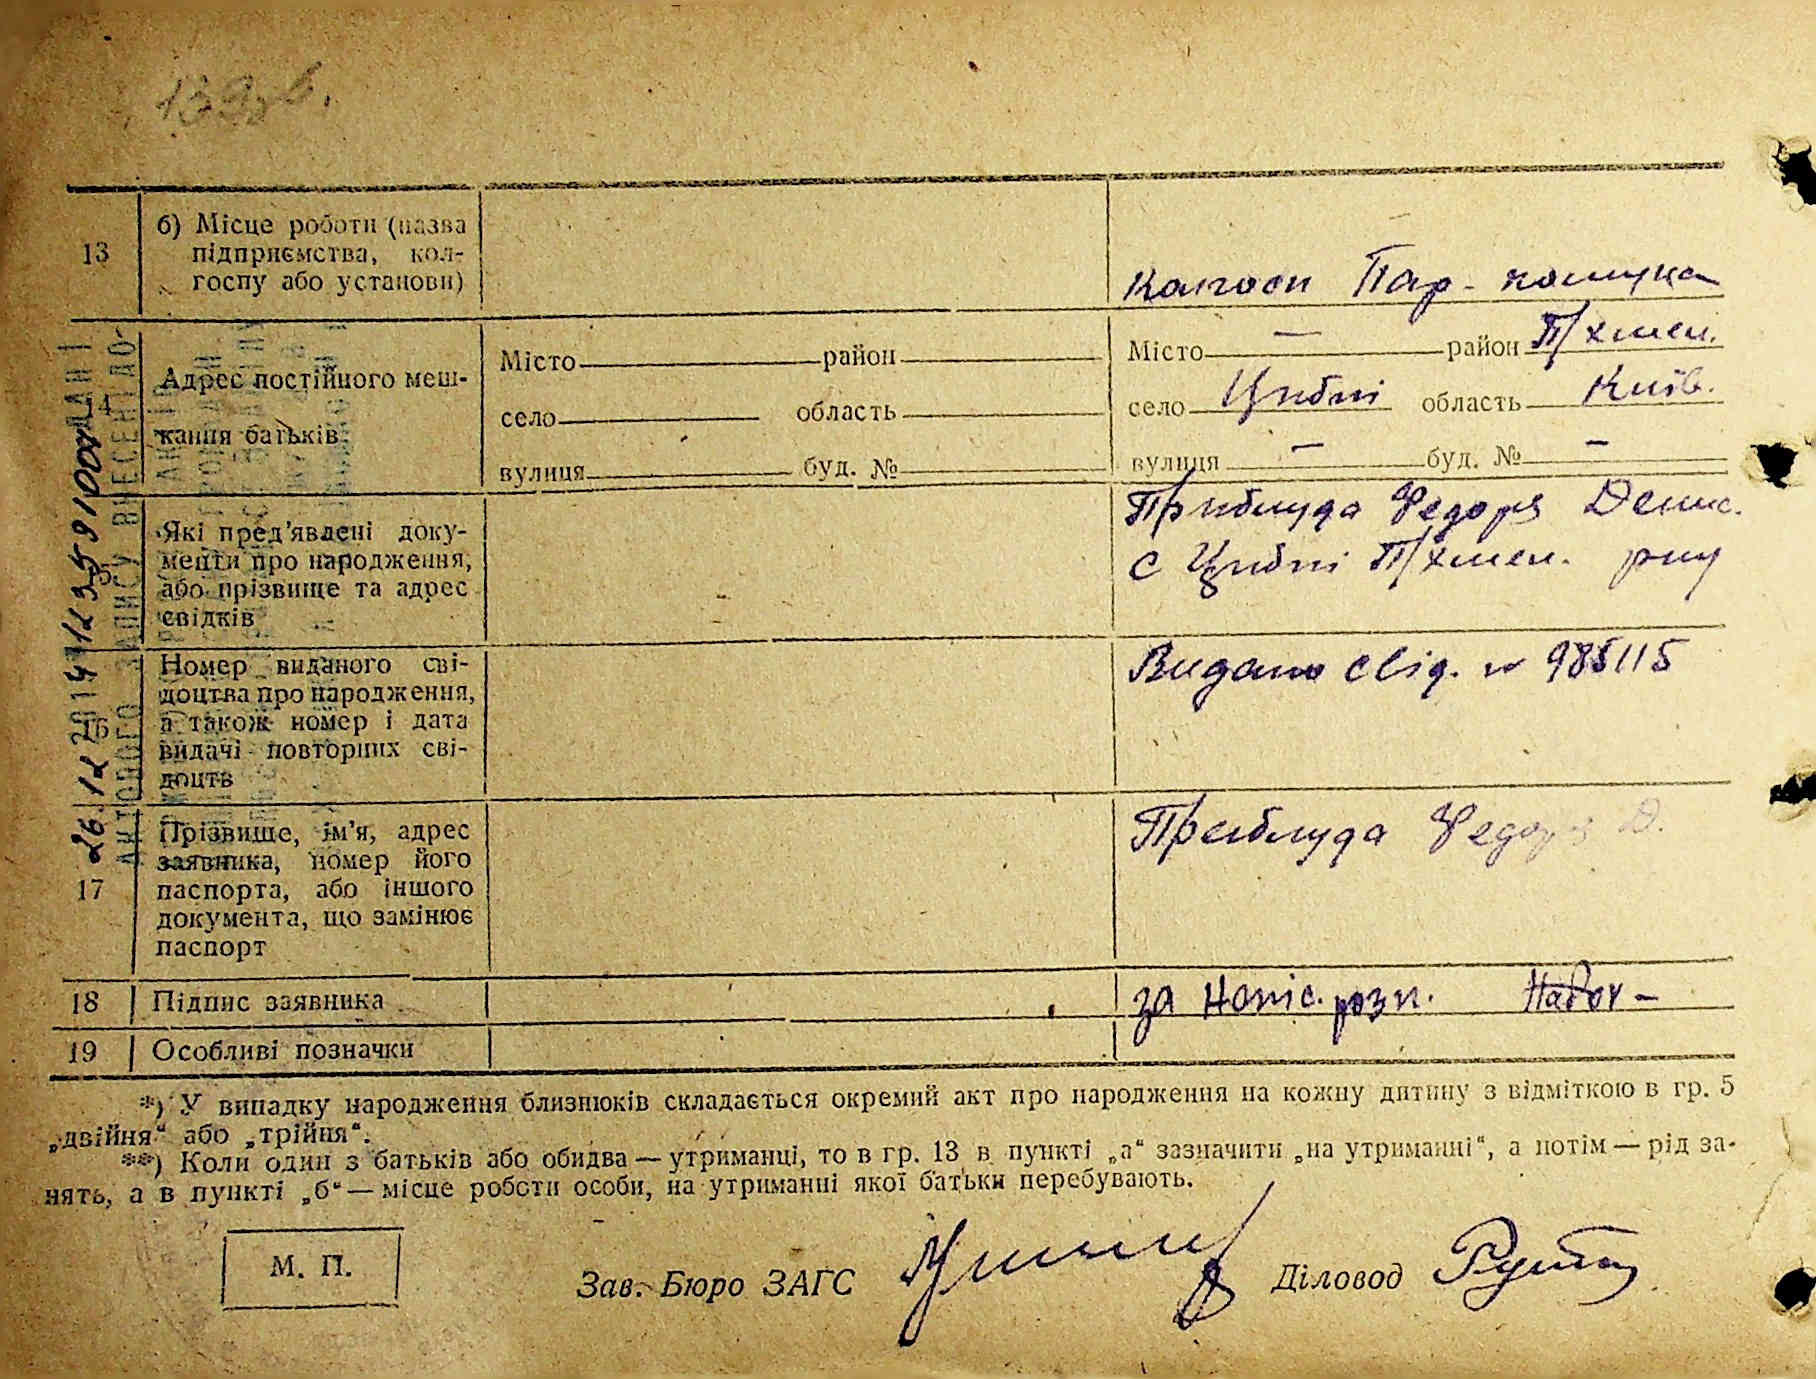 139зв.
13
б) Місце роботи (назва
підприємства, кол-
госпу або установи)
Колгосп Пар-комуна
Адрес постійного меш-
кання батьків
Місто район
село область
вулиця буд. №
Місто — район П/хмел.
село Циблі область Київ.
вулиця — буд. № —
Які пред'явлені доку-
менти про народження,
або прізвище та адрес
свідків
Приблуда Федора Денис.
с Циблі П/хмел. р-ну
26.12.2014 12359100
АНТОВОГО ЗАПИСУ ВНЕСЕНІ ДО
16
Номер виданого сві-
доцтва про народження,
а також номер і дата
видачі повторних сві-
доцтв
Видано свід. № 985115
17
Прізвище, ім'я, адрес
заявника, номер його
паспорта, або іншого
документа, що замінює
паспорт
Приблуда Федора Д.
18 Підпис заявника
за розп.
19 Особливі позначки
*) У випадку народження близнюків складається окремий акт про народження на кожну дитину з відміткою в гр. 5
„двійня“ або „трійня“.
**) Коли один з батьків або обидва — утриманці, то в гр. 13 в пункті „а“ зазначити „на утриманні“, а потім — рід за-
нять, а в пункті „б“ — місце роботи особи, на утриманні якої батьки перебувають.
М. П.
Зав. Бюро ЗАГС
Діловод